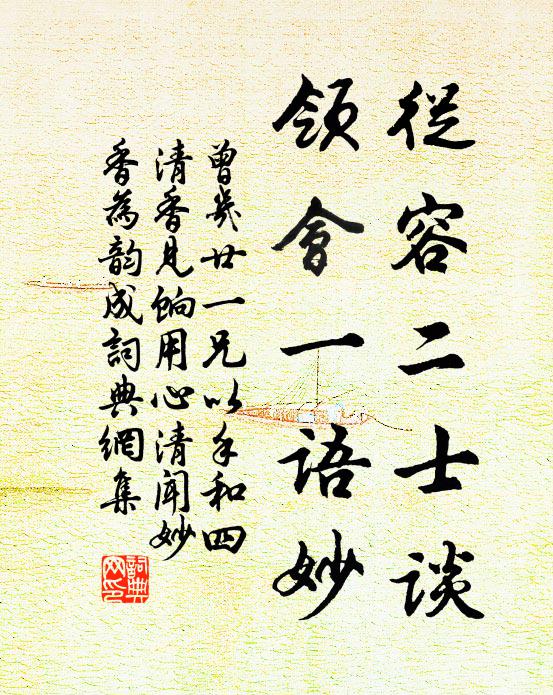 從容二士談
領會一語妙
曾幾廿一兄以手和四
清香見餉用心清聞妙
香為韵成詞典網集
詞典网印